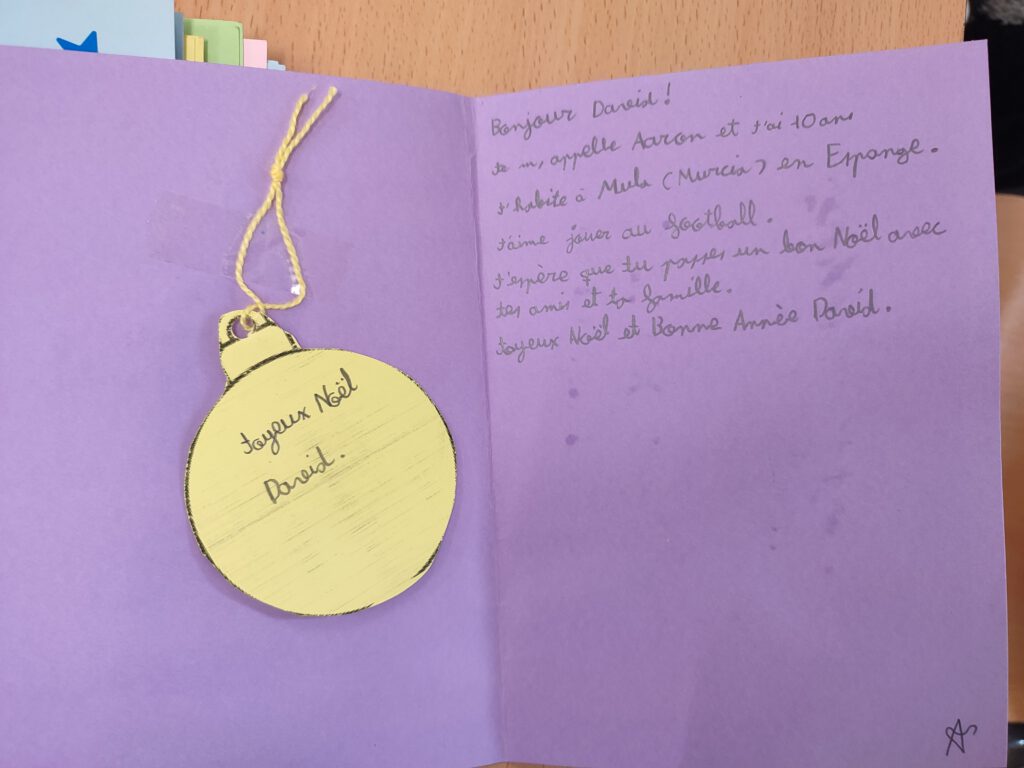 Joyeux Noël
David.
Bonjour David!
Je m,appelle Aaron et J'ai 10 ans
J'habite à Mula (Murcia) en Espange.
J'aime jouer au football.
J'espère que tu passes un bon Noël avec
tes amis et ta famille.
Joyeux Noël et Bonne Annèe David.